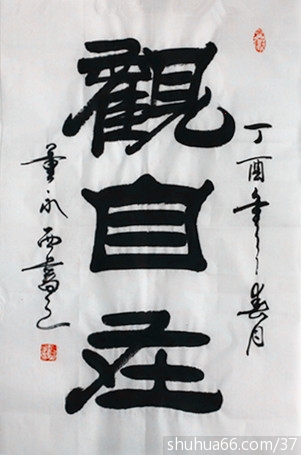 觀自在
丁酉年春月
董永西書
shuhua66.com/37